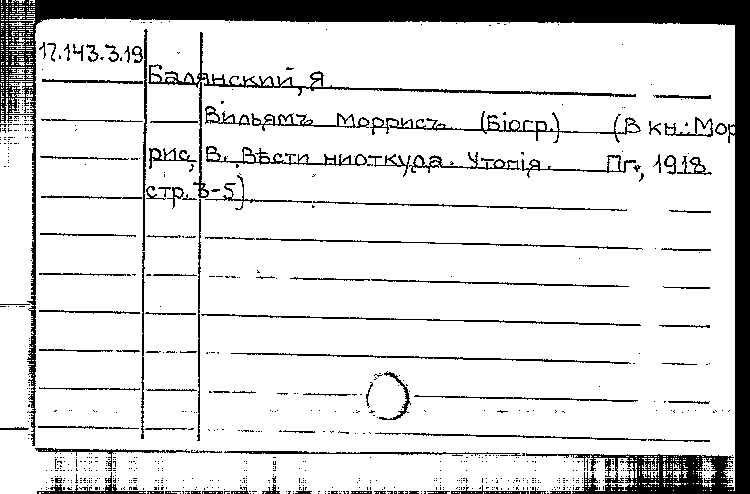 17.143.3.19
Балянский, Я.
Вильямъ Моррисъ (Біогр.) (В кн.: Мор
рис, В. Вѣсти ниоткуда. Утопія. Пг., 1918.
стр. 3-5).